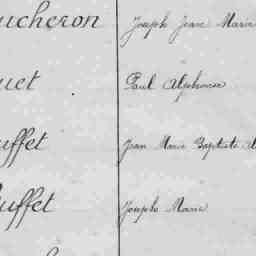 ucheron Joseph Jean Marie
uet Paul Alphonse
uffet Jean Marie Baptiste A
uffet Joseph Marie